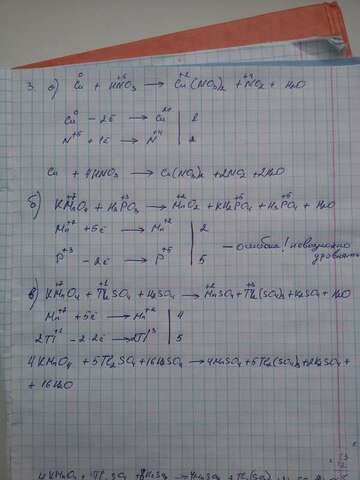 3. а) Cu⁰ + HN⁺⁵O₃ → Cu⁺²(NO₃)₂ + N⁺⁴O₂ + H₂O
Cu⁰ - 2ē → Cu²⁺ | 1
N⁺⁵ + 1ē → N⁺⁴ | 2
Cu + 4HNO₃ → Cu(NO₃)₂ + 2NO₂ + 2H₂O
б) KMn⁺⁷O₄ + H₃P⁺³O₃ → Mn⁺²O₂ + KH₂P⁺⁵O₄ + H₃P⁺⁵O₄ + H₂O
Mn⁺⁷ + 5ē → Mn⁺² | 2
P⁺³ - 2ē → P⁺⁵ | 5
- ошибка! невозможно уровнять
в) KMn⁺⁷O₄ + Tl⁺¹₂SO₄ + H₂SO₄ → Mn⁺²SO₄ + Tl⁺³₂(SO₄)₃ + K₂SO₄ + H₂O
Mn⁺⁷ + 5ē → Mn⁺² | 4
2Tl⁺¹ - 2·2ē → 2Tl⁺³ | 5
4KMnO₄ + 5Tl₂SO₄ + 16H₂SO₄ → 4MnSO₄ + 5Tl₂(SO₄)₃ + 2K₂SO₄ +
+ 16H₂O